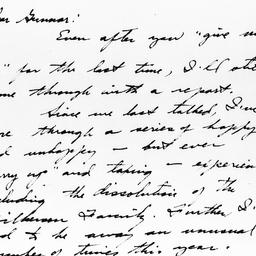 ar Gunnar:
Even after you "give m
" for the last time, I'll sti
me through with a report.
Since we last talked, I've
ne through a series of happy
d unhappy - but ever
rry up" and taking - experien
cluding the dissolution of the
Further I'
d to be away an unusual
number of times this year.